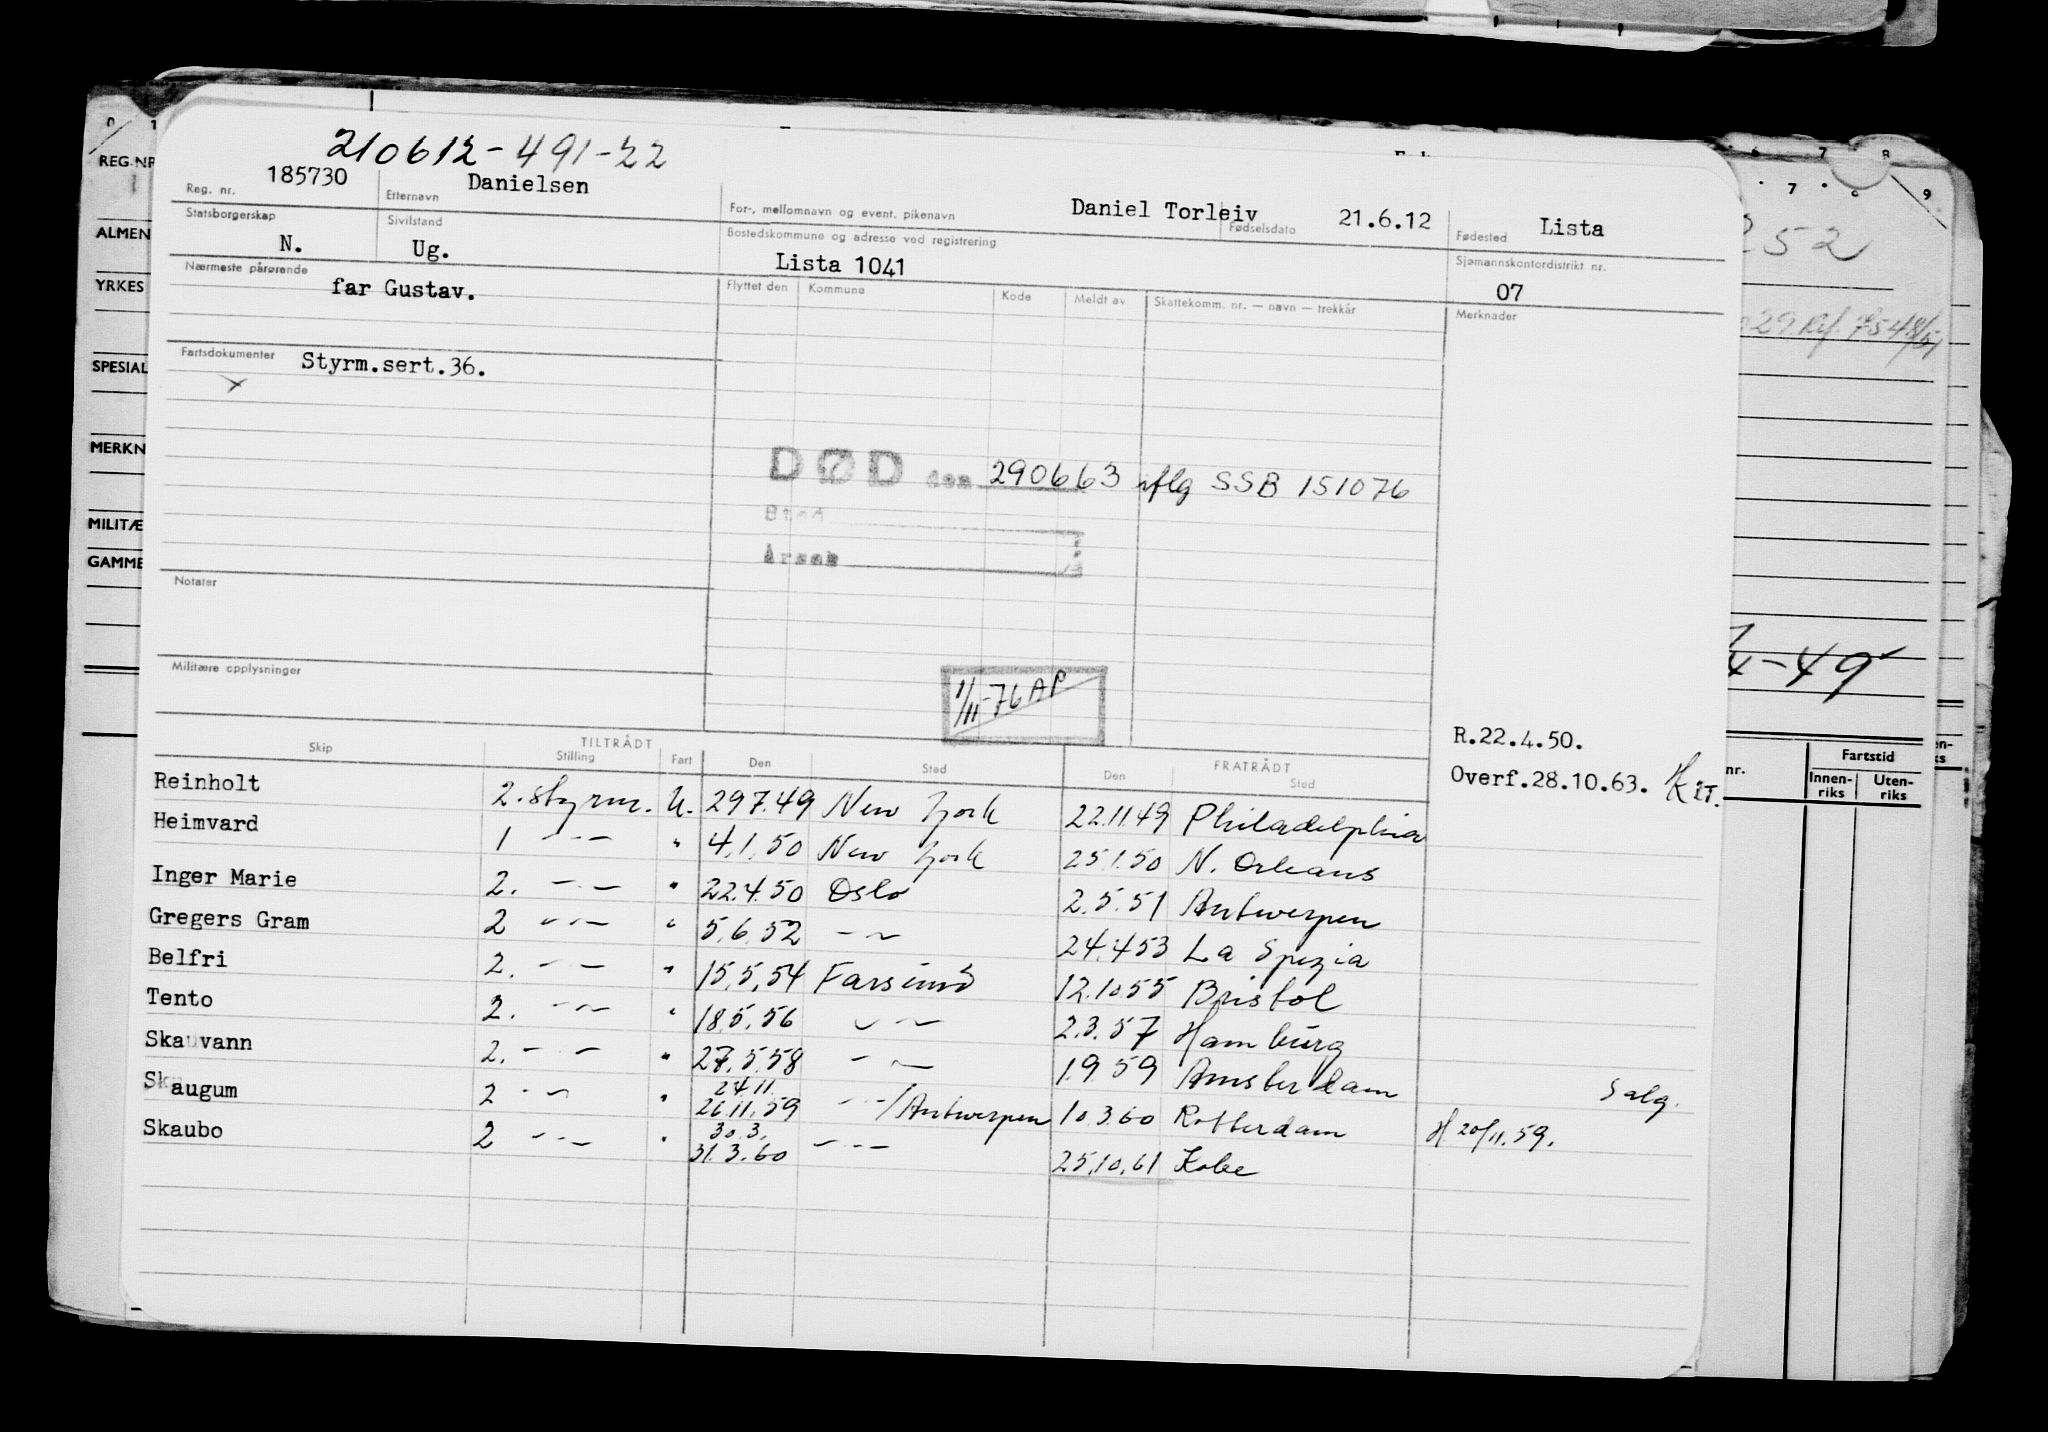 210612-491-22
Reg. nr. 185730 Etternavn Danielsen For-, mellomnavn og event. pikenavn Daniel Torleiv Fødselsdato 21.6.12 Fødested Lista
Statsborgerskap N. Sivilstand Ug. Bostedskommune og adresse ved registrering Lista 1041 Sjømannskontordistrikt nr. 07
Nærmeste pårørende far Gustav. Flyttet den Kommune Kode Meldt av Skattekomm. nr. — navn — trekkår Merknader
Fartsdokumenter Styrm.sert.36.
DØD den 290663 iflg SSB 151076
Sted
Årsak
Notater
Militære opplysninger
1/11-76 AP
R.22.4.50.
Overf.28.10.63.
TILTRÅDT FRATRÅDT
Skip Stilling Fart Den Sted Den Sted
Reinholt 2. styrm. U. 29.7.49 New York 22.11.49 Philadelphia
Heimvard 1 -"- " 4.1.50 New York 25.1.50 N. Orleans
Inger Marie 2. -"- " 22.4.50 Oslo 2.5.51 Antwerpen
Gregers Gram 2 -"- " 5.6.52 -"- 24.4.53 La Spezia
Belfri 2. -"- " 15.5.54 Farsund 12.10.55 Bristol
Tento 2. -"- " 18.5.56 -"- 2.3.57 Hamburg
Skauvann 2. -"- " 27.5.58 -"- 1.9.59 Amsterdam Salg.
Skaugum 2 -"- " 24.11. 26.11.59 -"-/Antwerpen 10.3.60 Rotterdam H 20/11.59.
Skaubo 2 -"- " 30.3. 31.3.60 -"- 25.10.61 Kobe
REG.NR
ALMEN
YRKES
SPESIAL
MERKN
MILITÆ
GAMME
0 1
6 7 8
7 8 9
252
4-49
nr. Fartstid
Innen-riks Uten-riks